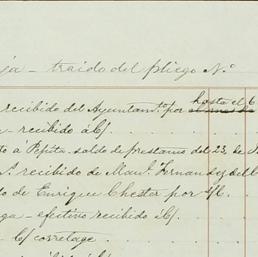 ja - traido del pliego Nº
hasta el 6
recibido del Ayuntamto por el mes de
a - recibido a/c/
to a Pepita saldo de prestamo del 23, de
recibido de Manl. Fernandez del C
do de Enrique Chester por s/c
ga - efectivo recibido s/c/
c/ corretage